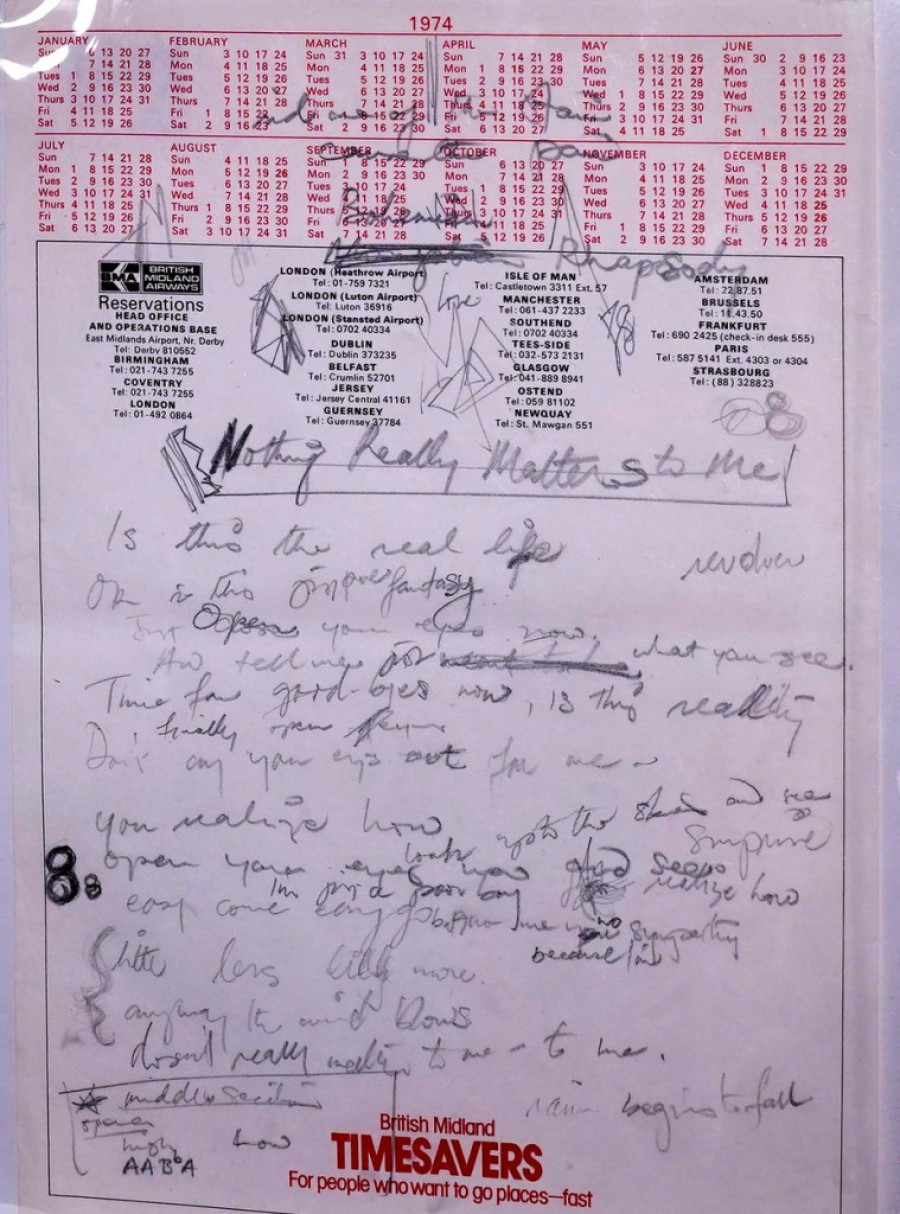 1974
JANUARY
Sun 6 13 20 27
7 14 21 28
Tues 1 8 15 22 29
Wed 2 9 16 23 30
Thurs 3 10 17 24 31
Fri 4 11 18 25
Sat 5 12 19 26
FEBRUARY
Sun 3 10 17 24
Mon 4 11 18 25
Tues 5 12 19 26
Wed 6 13 20 27
Thurs 7 14 21 28
Fri 1 8 15 22
Sat 2 9 16 23
MARCH
Sun 31 3 10 17 24
Mon 4 11 18 25
Tues 5 12 19 26
Wed 6 13 20 27
Thurs 7 14 21 28
Fri 1 8 15 22 29
Sat 2 9 16 23 30
APRIL
Sun 7 14 21 28
Mon 1 8 15 22 29
Tues 2 9 16 23 30
Wed 3 10 17 24
Thurs 4 11 18 25
Fri 5 12 19 26
Sat 6 13 20 27
MAY
Sun 5 12 19 26
Mon 6 13 20 27
Tues 7 14 21 28
Wed 1 8 15 22 29
Thurs 2 9 16 23 30
Fri 3 10 17 24 31
Sat 4 11 18 25
JUNE
Sun 30 2 9 16 23
Mon 3 10 17 24
Tues 4 11 18 25
Wed 5 12 19 26
Thurs 6 13 20 27
Fri 7 14 21 28
Sat 1 8 15 22 29
JULY
Sun 7 14 21 28
Mon 1 8 15 22 29
Tues 2 9 16 23 30
Wed 3 10 17 24 31
Thurs 4 11 18 25
Fri 5 12 19 26
Sat 6 13 20 27
AUGUST
Sun 4 11 18 25
Mon 5 12 19 26
Tues 6 13 20 27
Wed 7 14 21 28
Thurs 1 8 15 22 29
Fri 2 9 16 23 30
Sat 3 10 17 24 31
SEPTEMBER
Sun 1 8 15 22 29
Mon 2 9 16 23 30
Tues 3 10 17 24
Wed 4 11 18 25
Thurs 5 12 19 26
Fri 6 13 20 27
Sat 7 14 21 28
OCTOBER
Sun 6 13 20 27
Mon 7 14 21 28
Tues 1 8 15 22 29
Wed 2 9 16 23 30
Thurs 3 10 17 24 31
Fri 4 11 18 25
Sat 5 12 19 26
NOVEMBER
Sun 3 10 17 24
Mon 4 11 18 25
Tues 5 12 19 26
Wed 6 13 20 27
Thurs 7 14 21 28
Fri 1 8 15 22 29
Sat 2 9 16 23 30
DECEMBER
Sun 1 8 15 22 29
Mon 2 9 16 23 30
Tues 3 10 17 24 31
Wed 4 11 18 25
Thurs 5 12 19 26
Fri 6 13 20 27
Sat 7 14 21 28
Bohemian
Rhapsody
BMA BRITISH MIDLAND AIRWAYS
Reservations
HEAD OFFICE
AND OPERATIONS BASE
East Midlands Airport, Nr. Derby
Tel: Derby 810552
BIRMINGHAM
Tel: 021-743 7255
COVENTRY
Tel: 021-743 7255
LONDON
Tel: 01-492 0864
LONDON (Heathrow Airport)
Tel: 01-759 7321
LONDON (Luton Airport)
Tel: Luton 36916
LONDON (Stansted Airport)
Tel: 0702 40334
DUBLIN
Tel: Dublin 373235
BELFAST
Tel: Crumlin 52701
JERSEY
Tel: Jersey Central 41161
GUERNSEY
Tel: Guernsey 37784
love
ISLE OF MAN
Tel: Castletown 3311 Ext. 57
MANCHESTER
Tel: 061-437 2233
SOUTHEND
Tel: 0702 40334
TEES-SIDE
Tel: 032-573 2131
GLASGOW
Tel: 041-889 8941
OSTEND
Tel: 059 81102
NEWQUAY
Tel: St. Mawgan 551
AMSTERDAM
Tel: 22.87.51
BRUSSELS
Tel: 11.43.50
FRANKFURT
Tel: 690 2425 (check-in desk 555)
PARIS
Tel: 587 5141 Ext. 4303 or 4304
STRASBOURG
Tel: (88) 328823
Nothing Really Matters to Me
Is this the real life
revolver
Or is this just pure fantasy
Just open your eyes now.
And tell me what you see.
Time for good-byes now, is this reality
finally open
Don't cry your eyes out for me
you realize how
look up to the skies and see
surprise
open your eyes realize how
I'm just a poor boy
easy come easy go
no sympathy
because I'm
little less little more
anyway the wind blows
doesn't really matter to me - to me.
middle section
opera
rain begins to fall
high low
AABA
British Midland
TIMESAVERS
For people who want to go places—fast